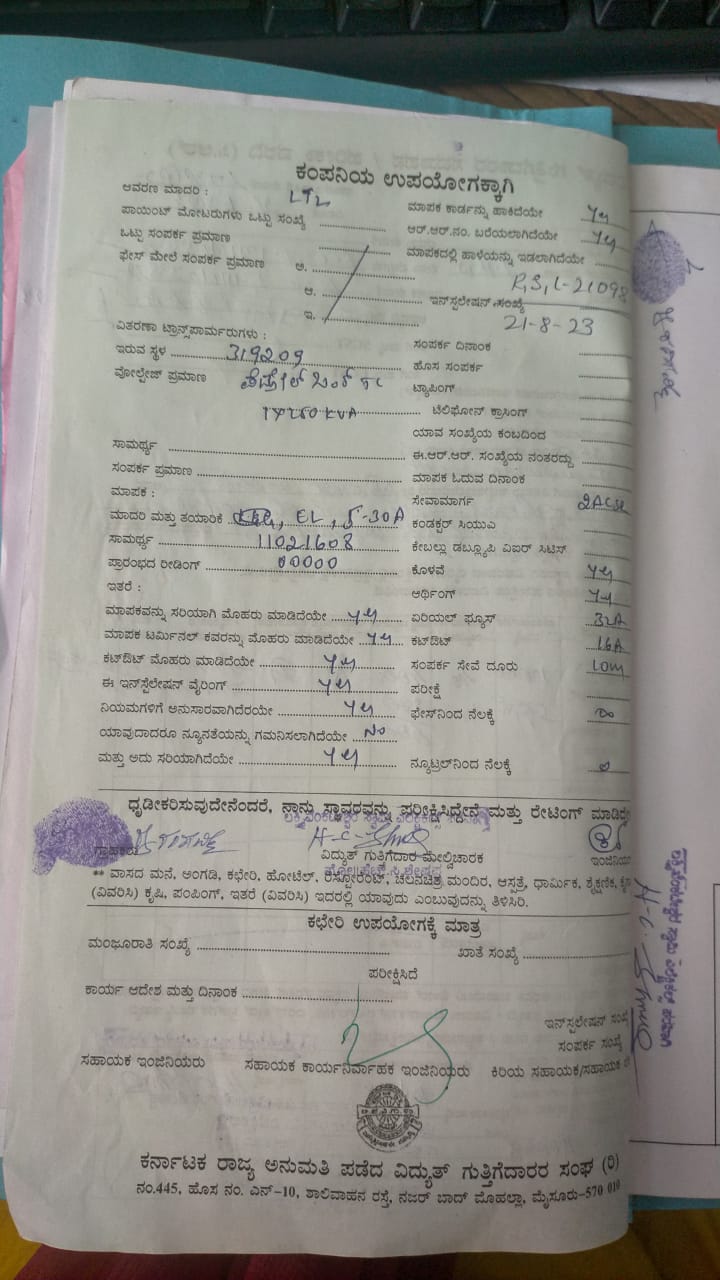 ಕಂಪನಿಯ ಉಪಯೋಗಕ್ಕಾಗಿ
ಆವರಣ ಮಾದರಿ : LTL
ಮಾಪಕ ಕಾರ್ಡನ್ನು ಹಾಕಿದೆಯೇ
ಪಾಯಿಂಟ್ ಮೋಟರುಗಳು ಒಟ್ಟು ಸಂಖ್ಯೆ
ಆರ್.ಆರ್.ನಂ. ಬರೆಯಲಾಗಿದೆಯೇ
ಒಟ್ಟು ಸಂಪರ್ಕ ಪ್ರಮಾಣ
ಮಾಪಕದಲ್ಲಿ ಹಾಳೆಯನ್ನು ಇಡಲಾಗಿದೆಯೇ
ಫೇಸ್ ಮೇಲೆ ಸಂಪರ್ಕ ಪ್ರಮಾಣ ಅ.
ಆ.
ಇನ್‌ಸ್ಟಲೇಷನ್ ಸಂಖ್ಯೆ R,S,L-21098
ಇ.
21-8-23
ವಿತರಣಾ ಟ್ರಾನ್ಸ್‌ಫಾರ್ಮರುಗಳು :
ಸಂಪರ್ಕ ದಿನಾಂಕ
ಇರುವ ಸ್ಥಳ 319209
ಹೊಸ ಸಂಪರ್ಕ
ವೋಲ್ಟೇಜ್ ಪ್ರಮಾಣ
ಟ್ಯಾಪಿಂಗ್
250 KVA
ಟೆಲಿಫೋನ್ ಕ್ರಾಸಿಂಗ್
ಯಾವ ಸಂಖ್ಯೆಯ ಕಂಬದಿಂದ
ಸಾಮರ್ಥ್ಯ
ಈ.ಆರ್.ಆರ್. ಸಂಖ್ಯೆಯ ನಂತರದ್ದು
ಸಂಪರ್ಕ ಪ್ರಮಾಣ
ಮಾಪಕ ಓದುವ ದಿನಾಂಕ
ಮಾಪಕ :
ಸೇವಾಮಾರ್ಗ 2ACSR
ಮಾದರಿ ಮತ್ತು ತಯಾರಿಕೆ EL, 5-30A
ಕಂಡಕ್ಟರ್ ಸಿಯುಎ
ಸಾಮರ್ಥ್ಯ 11021608
ಕೇಬಲ್ಲು ಡಬ್ಲ್ಯೂಪಿ ವಿಐರ್ ಸಿಟಿಸ್
ಪ್ರಾರಂಭದ ರೀಡಿಂಗ್ 00000
ಕೊಳವೆ
ಇತರೆ :
ಆರ್ಥಿಂಗ್
ಮಾಪಕವನ್ನು ಸರಿಯಾಗಿ ಮೊಹರು ಮಾಡಿದೆಯೇ
ಏರಿಯಲ್ ಫ್ಯೂಸ್ 32A
ಮಾಪಕ ಟರ್ಮಿನಲ್ ಕವರನ್ನು ಮೊಹರು ಮಾಡಿದೆಯೇ
ಕಟ್‌ಔಟ್ 16A
ಕಟ್‌ಔಟ್ ಮೊಹರು ಮಾಡಿದೆಯೇ
ಸಂಪರ್ಕ ಸೇವೆ ದೂರು 10m
ಈ ಇನ್‌ಸ್ಟೆಲೇಷನ್ ವೈರಿಂಗ್
ಪರೀಕ್ಷೆ
ನಿಯಮಗಳಿಗೆ ಅನುಸಾರವಾಗಿದೆರಯೇ
ಫೇಸ್‌ನಿಂದ ನೆಲಕ್ಕೆ
ಯಾವುದಾದರೂ ನ್ಯೂನತೆಯನ್ನು ಗಮನಿಸಲಾಗಿದೆಯೇ No
ಮತ್ತು ಅದು ಸರಿಯಾಗಿದೆಯೇ
ನ್ಯೂಟ್ರಲ್‌ನಿಂದ ನೆಲಕ್ಕೆ
ಧೃಡೀಕರಿಸುವುದೇನೆಂದರೆ, ನ್ನಾನು ಸ್ಥಾವರವನ್ನು ಪರೀಕ್ಷಿಸಿದ್ದೇನೆ ಮತ್ತು ರೇಟಿಂಗ್ ಮಾಡಿರ
ವಿದ್ಯುತ್ ಗುತ್ತಿಗೆದಾರ ಮೇಲ್ವಿಚಾರಕ
** ವಾಸದ ಮನೆ, ಅಂಗಡಿ, ಕಛೇರಿ, ಹೋಟೆಲ್, ರೆಸ್ಟೋರೆಂಟ್, ಚಲನಚಿತ್ರ ಮಂದಿರ, ಆಸ್ಪತ್ರೆ, ಧಾರ್ಮಿಕ, ಶೈಕ್ಷಣಿಕ,
(ವಿವರಿಸಿ) ಕೃಷಿ, ಪಂಪಿಂಗ್, ಇತರೆ (ವಿವರಿಸಿ) ಇದರಲ್ಲಿ ಯಾವುದು ಎಂಬುವುದನ್ನು ತಿಳಿಸಿರಿ.
ಕಛೇರಿ ಉಪಯೋಗಕ್ಕೆ ಮಾತ್ರ
ಮಂಘೂರಾತಿ ಸಂಖ್ಯೆ
ಖಾತೆ ಸಂಖ್ಯೆ
ಪರೀಕ್ಷಿಸಿದೆ
ಕಾರ್ಯ ಆದೇಶ ಮತ್ತು ದಿನಾಂಕ
ಇನ್‌ಸ್ಟಲೇಷನ್ ಸಂಖ್ಯೆ
ಸಂಪರ್ಕ ಸಂಖ್ಯೆ
ಸಹಾಯಕ ಇಂಜಿನಿಯರು
ಸಹಾಯಕ ಕಾರ್ಯನಿರ್ವಾಹಕ ಇಂಜಿನಿಯರು
ಕಿರಿಯ ಸಹಾಯಕ/ಸಹಾಯಕ
ಕರ್ನಾಟಕ ರಾಜ್ಯ ಅನುಮತಿ ಪಡೆದ ವಿದ್ಯುತ್ ಗುತ್ತಿಗೆದಾರರ ಸಂಘ (ರಿ)
ನಂ.445, ಹೊಸ ನಂ. ಎನ್-10, ಶಾಲಿವಾಹನ ರಸ್ತೆ, ನಜರ್ ಬಾದ್ ಮೊಹಲ್ಲಾ, ಮೈಸೂರು-570 010